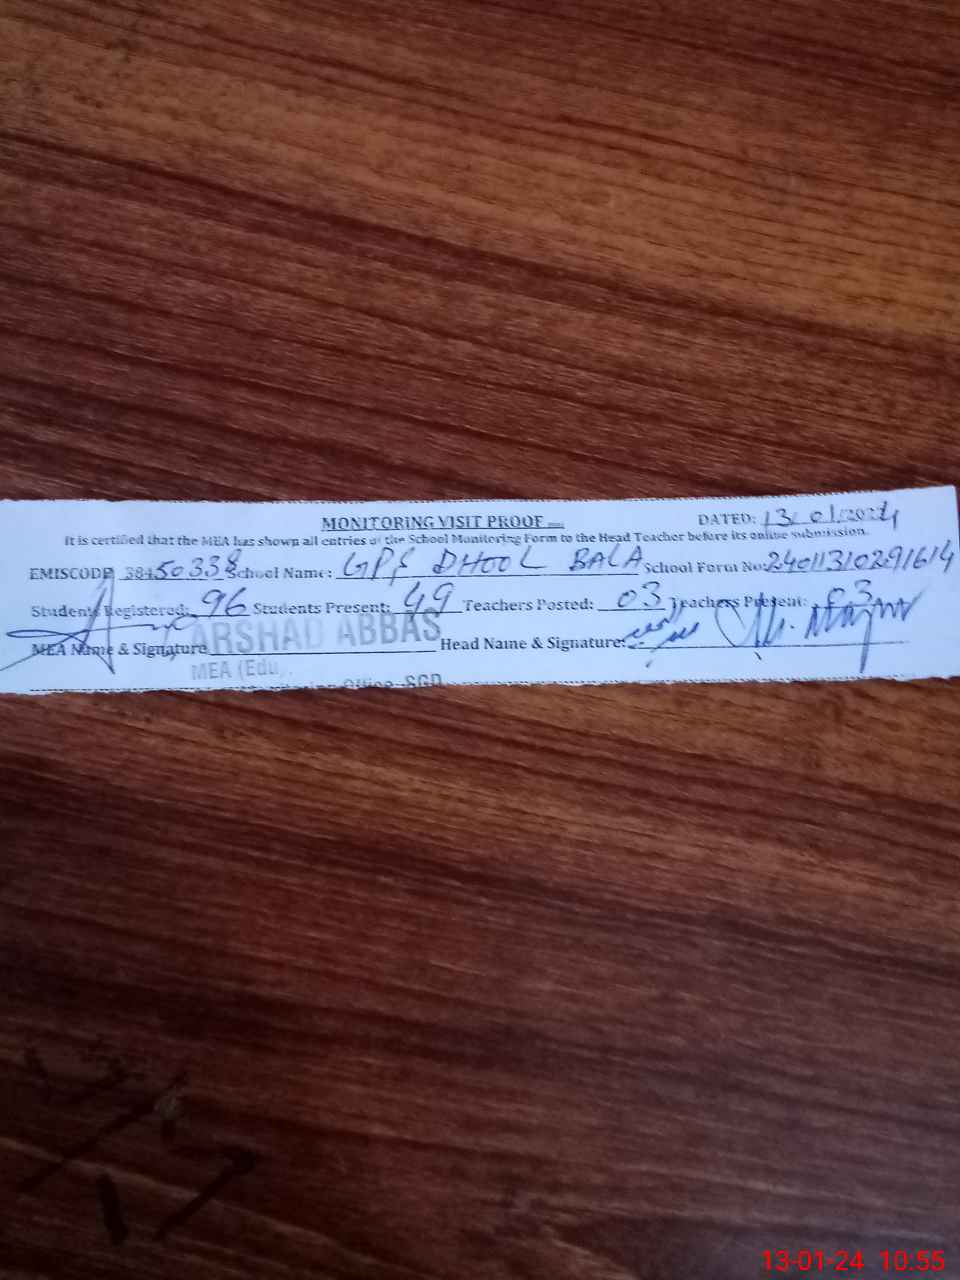 MONITORING VISIT PROOF
DATED: 13/01/2024
It is certified that the MEA has shown all entries of the School Monitoring Form to the Head Teacher before its online submission.
EMISCODE 38450338 School Name: GPS DHOOL BALA School Form No: 2401131029 1614
Students Registered: 96 Students Present: 49 Teachers Posted: 03 Teachers Present: 03
MEA Name & Signature ARSHAD ABBAS Head Name & Signature:
MEA (Edu)
Office SGD
13-01-24 10:55